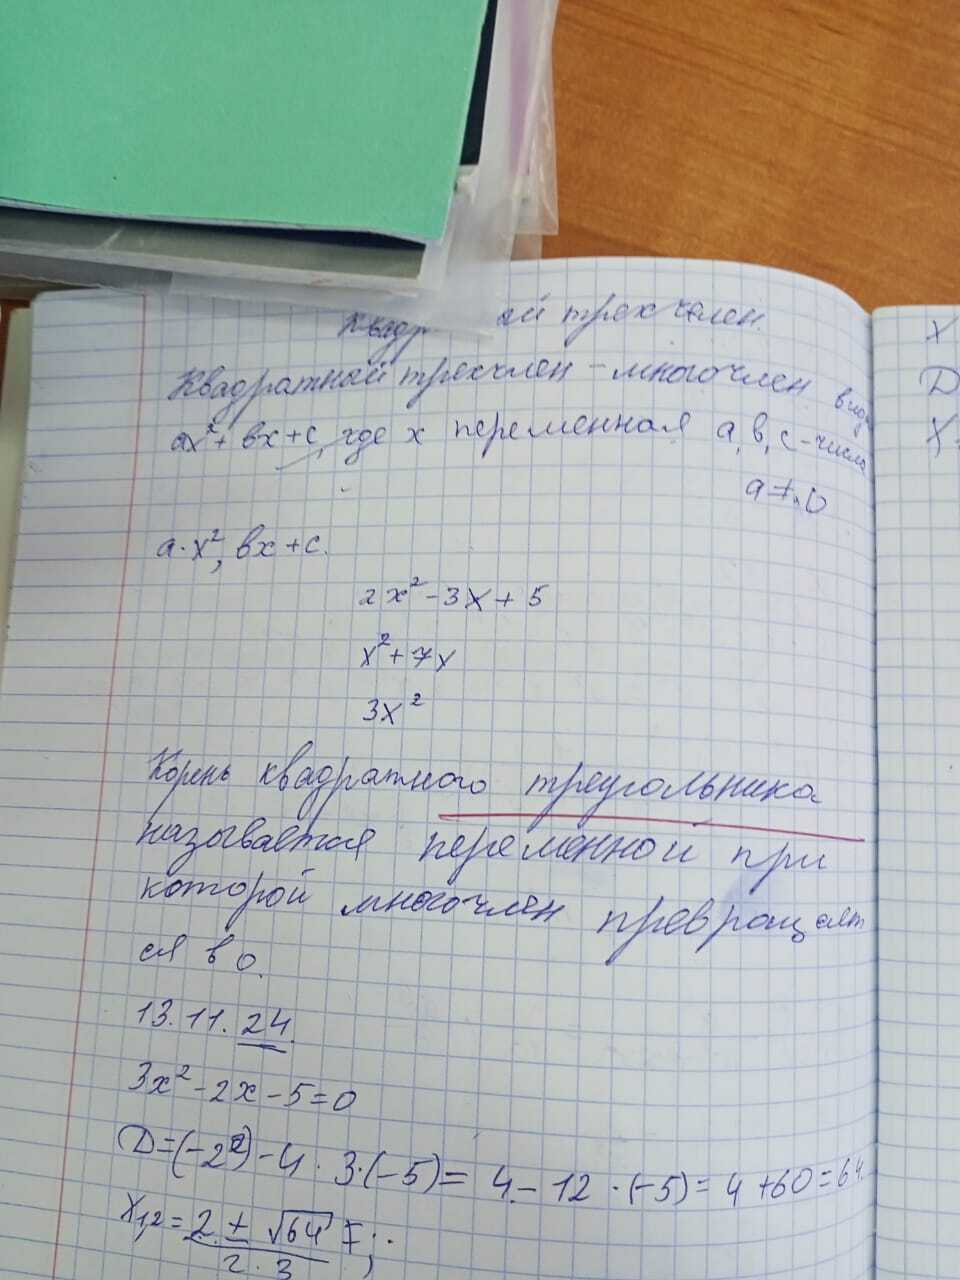 й трехчлен.
Квадратный трехчлен - многочлен вида
ax²+ вx+c, где x переменная a, в, c - числа
a ≠ 0
a·x², вx+c.
2x²-3x+5
x²+7x
3x²
Корень квадратного треугольника
называется переменной при
которой многочлен превращает
ся в 0.
13.11.24
3x²-2x-5=0
D=(-2²)-4·3·(-5)= 4-12·(-5)=4+60=64
X₁,₂=2±√64
2·3
x
D
X